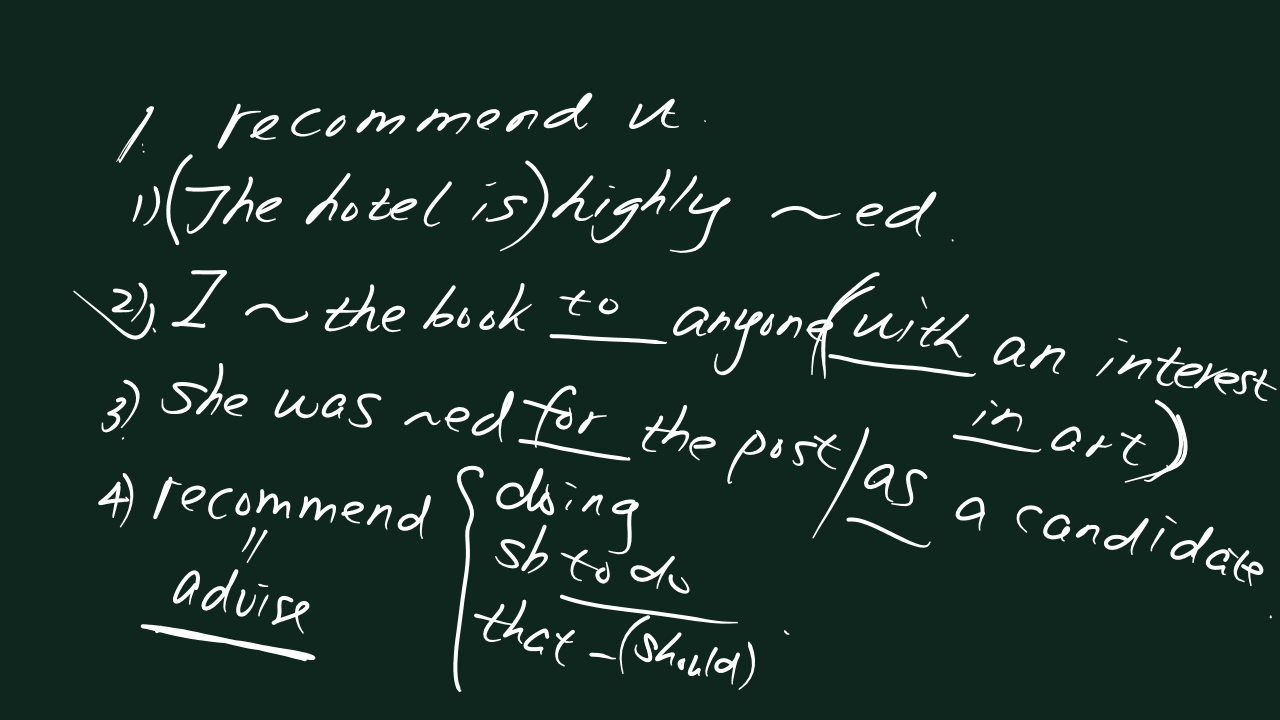 1. recommend vt.
1) (The hotel is) highly ~ed.
2). I ~ the book to anyone (with an interest
in art)
3) She was ~ed for the post / as a candidate.
4) recommend { doing
sb to do
that - (should)
=
advise